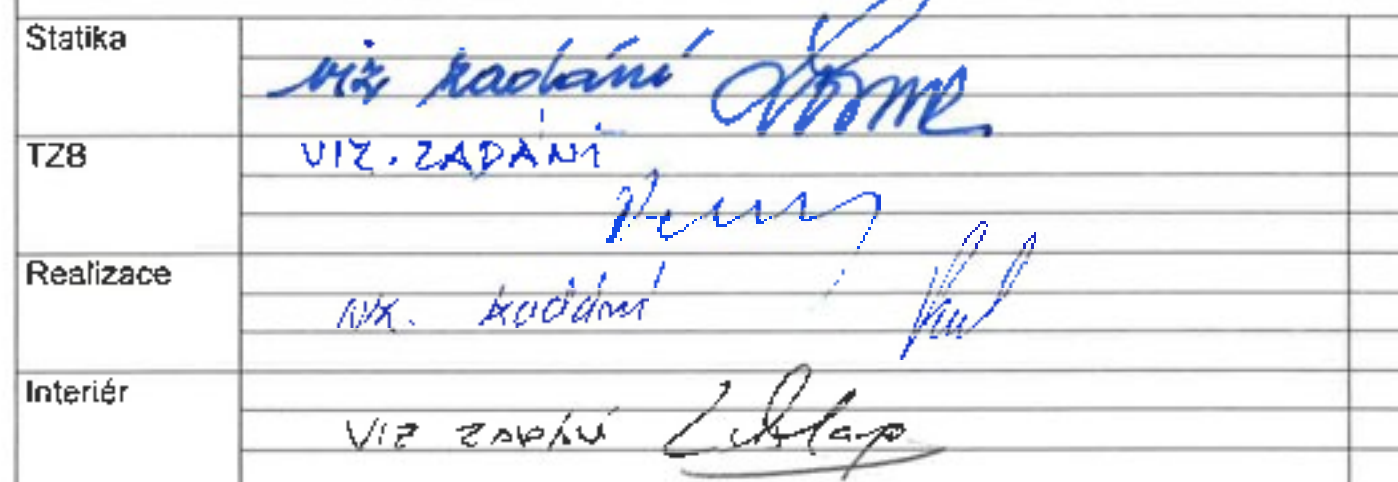 Statika
viz zadání
TZB
VIZ. ZADÁNÍ
Realizace
viz. zadání
Interiér
VIZ ZADÁNÍ